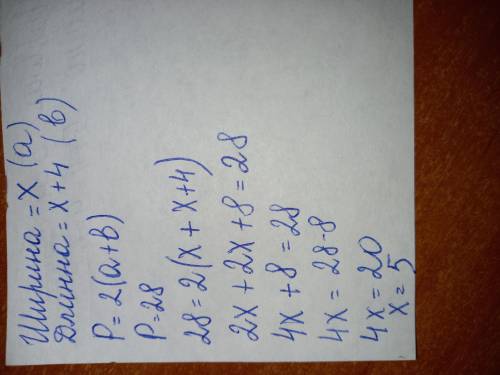 Ширина = x (a)
Длинна = x+4 (b)
P = 2(a+b)
P = 28
28 = 2(x + x+4)
2x + 2x + 8 = 28
4x + 8 = 28
4x = 28-8
4x = 20
x = 5